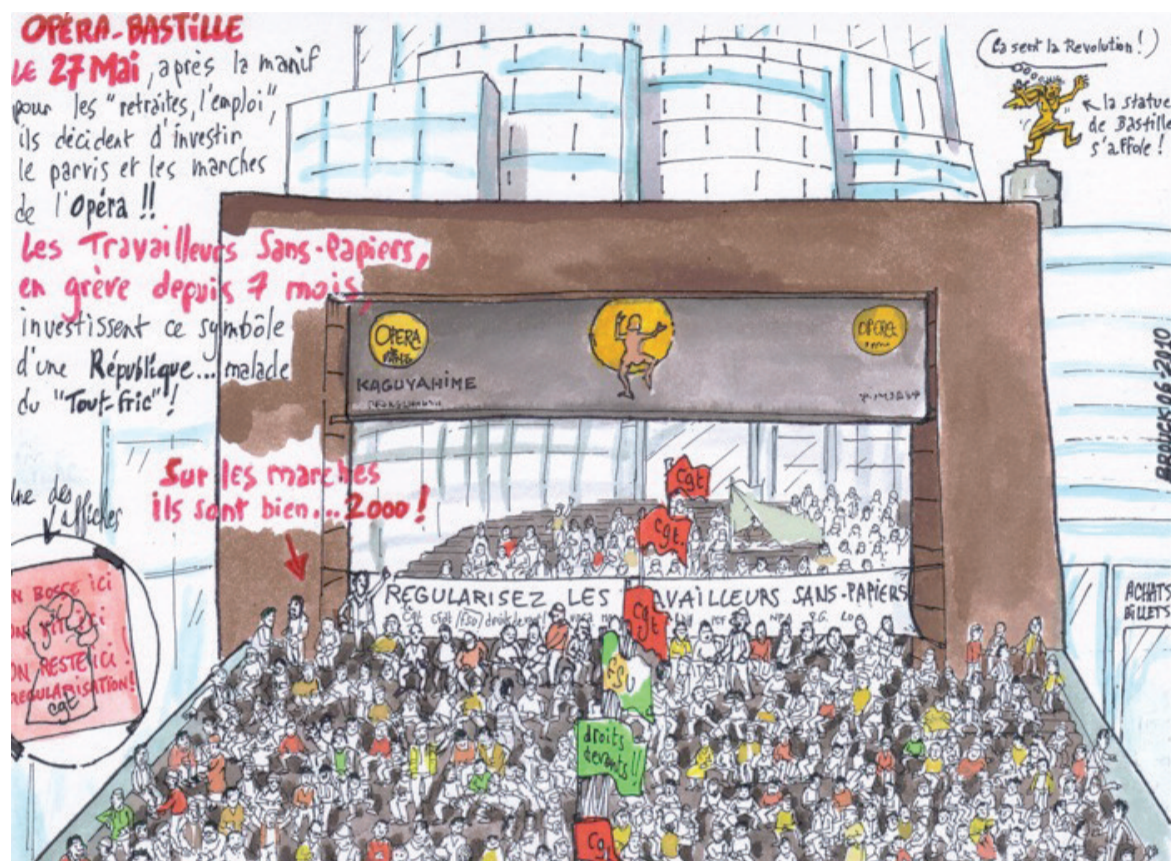 OPÉRA-BASTILLE
LE 27 Mai, après la manif
pour les "retraites, l'emploi",
ils décident d'investir
le parvis et les marches
de l'Opéra !!
Les Travailleurs Sans-Papiers,
en grève depuis 7 mois,
investissent ce symbôle
d'une République... malade
du "Tout-fric" !
Sur les marches
ils sont bien... 2000 !
ne des
affiches
N BOSSE ICI
ON RESTE ICI !
REGULARISATION !
cgt
(ça sent la Revolution !)
la statue
de Bastille
s'affole !
OPERA
KAGUYAHIME
OPERA
cgt
cgt.
REGULARISEZ LES AVAILLEURS SANS-PAPIERS
cgt
FSU
droits
devants !!
cgt
ACHATS
BILLETS
2010